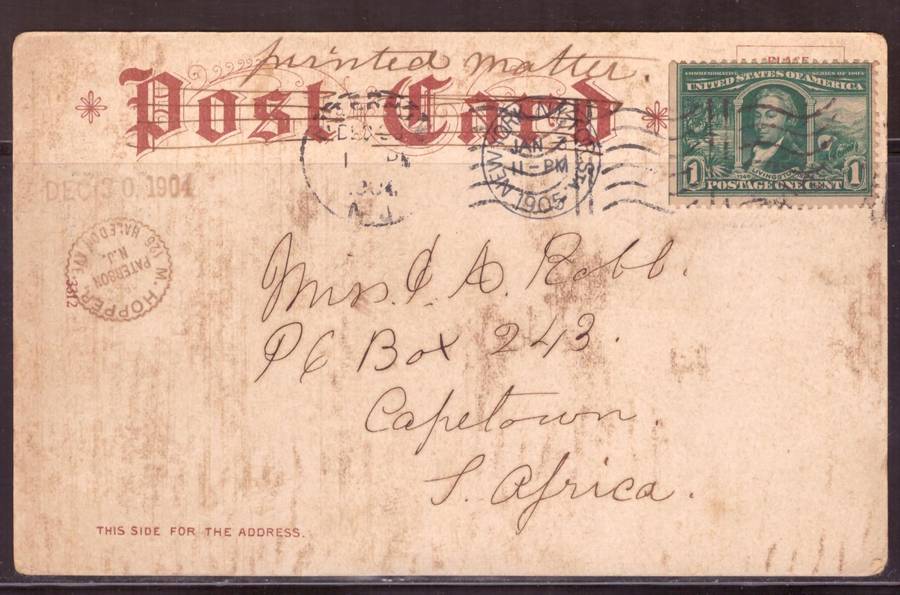 printed matter.
Post Card
PLACE
COMMEMORATIVE SERIES OF 1904
UNITED STATES OF AMERICA
1 LIVINGSTON 1
POSTAGE ONE CENT
DEC
1904
N.J.
NEW YORK
JAN
11-PM
1905
DEC 30 1904
M. HOPPER
126 HALEDON AVE.
PATERSON
N.J.
3312
Mrs. J. A. Robb.
P O Box 243.
Capetown.
S. Africa.
THIS SIDE FOR THE ADDRESS.